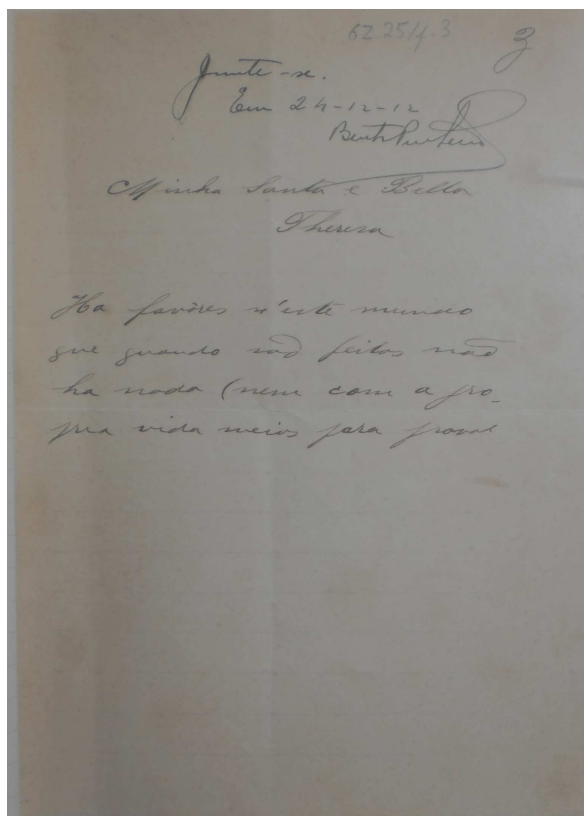 6Z.25/4.3
3
Junte-se.
Em 24-12-12
Minha Santa e Bella
Thereza
Ha favôres n'este mundo
que quando saõ feitos naõ
ha nada (nem com a pro-
pria vida meios para provar